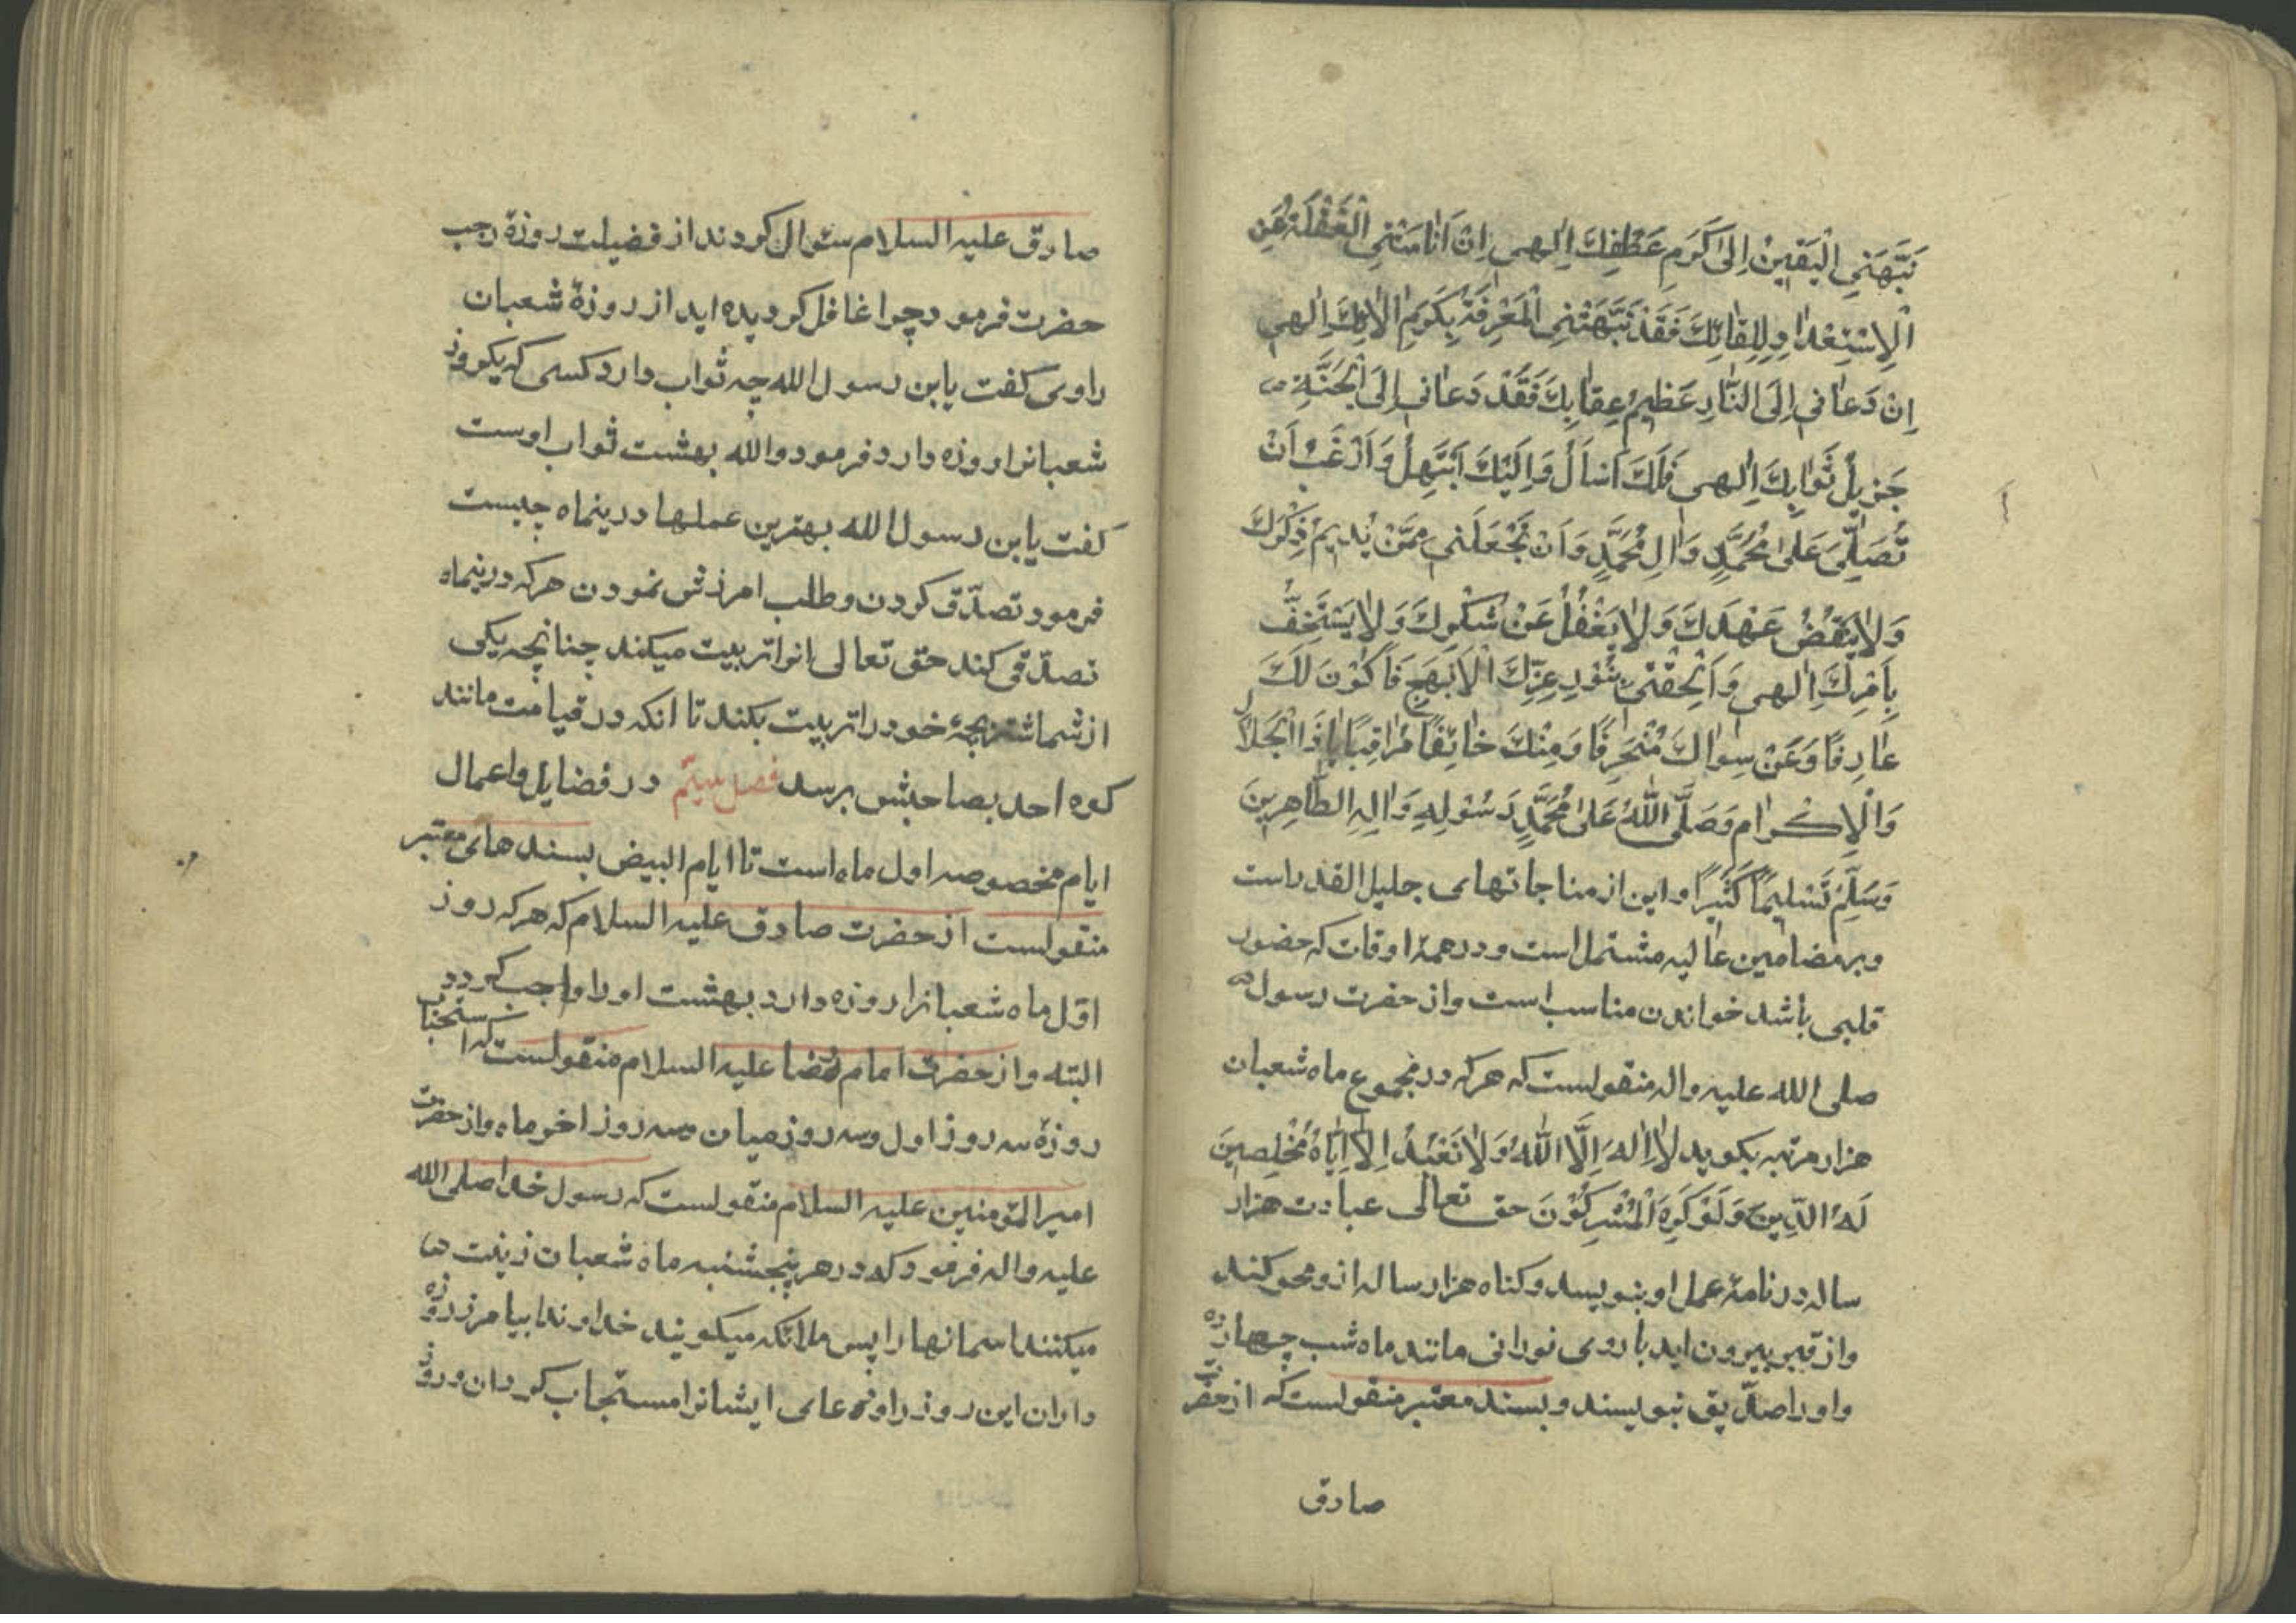 نَبَّهَنِي الْيَقِينُ اِلٰى كَرَمِ عَطْفِكَ اِلٰهى اِنْ اَنٰامَتْنِي الْغَفْلَةُ عَنِ
الْاِسْتِعْدٰادِ لِلِقٰائِكَ فَقَدْ نَبَّهَتْنِي الْمَعْرِفَةُ بِكَرَمِ اٰلٰائِكَ اِلٰهى
اِنْ دَعٰانى اِلَى النّٰارِ عَظِيمُ عِقٰابِكَ فَقَدْ دَعٰانى اِلَى الْجَنَّةِ
جَزيلُ ثَوٰابِكَ اِلٰهى فَلَكَ اَسْاَلُ وَاِلَيْكَ اَبْتَهِلُ وَاَرْغَبُ اَنْ
تُصَلِّىَ عَلٰى مُحَمَّدٍ وَاٰلِ مُحَمَّدٍ وَاَنْ تَجْعَلَنى مِمَّنْ يُديمُ ذِكْرَكَ
وَلٰا يَنْقُضُ عَهْدَكَ وَلٰا يَغْفُلُ عَنْ شُكْرِكَ وَلٰا يَسْتَخِفُّ
بِاَمْرِكَ اِلٰهى وَاَلْحِقْنى بِنُورِ عِزِّكَ الْاَبْهَجِ فَاَكُوْنَ لَكَ
عٰارِفًا وَعَنْ سِوٰاكَ مُنْحَرِفًا وَمِنْكَ خٰائِفًا مُرٰاقِبًا يٰا ذَا الْجَلاٰلِ
وَالْاِكْرٰامِ وَصَلَّى اللهُ عَلٰى مُحَمَّدٍ رَسُوْلِهِ وَاٰلِهِ الطّٰاهِرِينَ
وَسَلَّمَ تَسْليمًا كَثيرًا و اين از مناجاتهاى جليل القدر است
و بر مضامين عاليه مشتمل است و در همهٔ اوقات كه حضور
قلبى باشد خواندن مناسب است و از حضرت رسول
صلى الله عليه و اله منقولست كه هر كه در مجموع ماه شعبان
هزار مرتبه بكويد لٰا اِلٰهَ اِلَّا اللهُ وَلٰا نَعْبُدُ اِلّٰا اِيّٰاهُ مُخْلِصِينَ
لَهُ الدِّينَ وَلَوْ كَرِهَ الْمُشْرِكُوْنَ حق تعالى عبادت هزار
ساله در نامهٔ عمل او بنويسد و كناه هزار ساله از و محو كند
و از قبر بيرون ايد با روى نورانى مانند ماه شب چهارده
و او را صدّيق بنويسند و بسند معتبر منقولست كه از حضرت
صادق
صادق عليه السلام سئوال كردند از فضيلت روزهٔ رجب
حضرت فرمود چرا غافل كرديده ايد از روزهٔ شعبان
راوى كفت يابن رسول الله چه ثواب دارد كسى كه يكروز
شعبانرا روزه دارد فرمود والله بهشت ثواب اوست
كفت يابن رسول الله بهترين عملها درينماه چيست
فرمود تصدّق كردن و طلب امرزش نمودن هر كه درينماه
تصدّقى كند حق تعالى انرا تربيت ميكند چنانچه يكى
از شما شتر بچهٔ خود را تربيت بكند تا انكه در قيامت مانند
كوه احد بصاحبش برسد فصل سيّم در فضايل و اعمال
ايام مخصوصه اول ماه است تا ايام البيض بسندهاى معتبر
منقولست از حضرت صادق عليه السلام كه هر كه روز
اوّل ماه شعبانرا روزه دارد بهشت او را واجب كردد
البته و از حضرت امام رضا عليه السلام منقولست كه استحباب
روزهٔ سه روز اول و سه روز ميان و سه روز اخر ماه و از حضرت
امير المؤمنين عليه السلام منقولست كه رسول خدا صلى الله
عليه و اله فرمود كه در هر پنجشنبه ماه شعبان زينت
ميكنند اسمانها را پس ملائكه ميكويند خداوندا بيامرز روزه
داران اين روز را و دعاى ايشانرا مستجاب كردان و روز